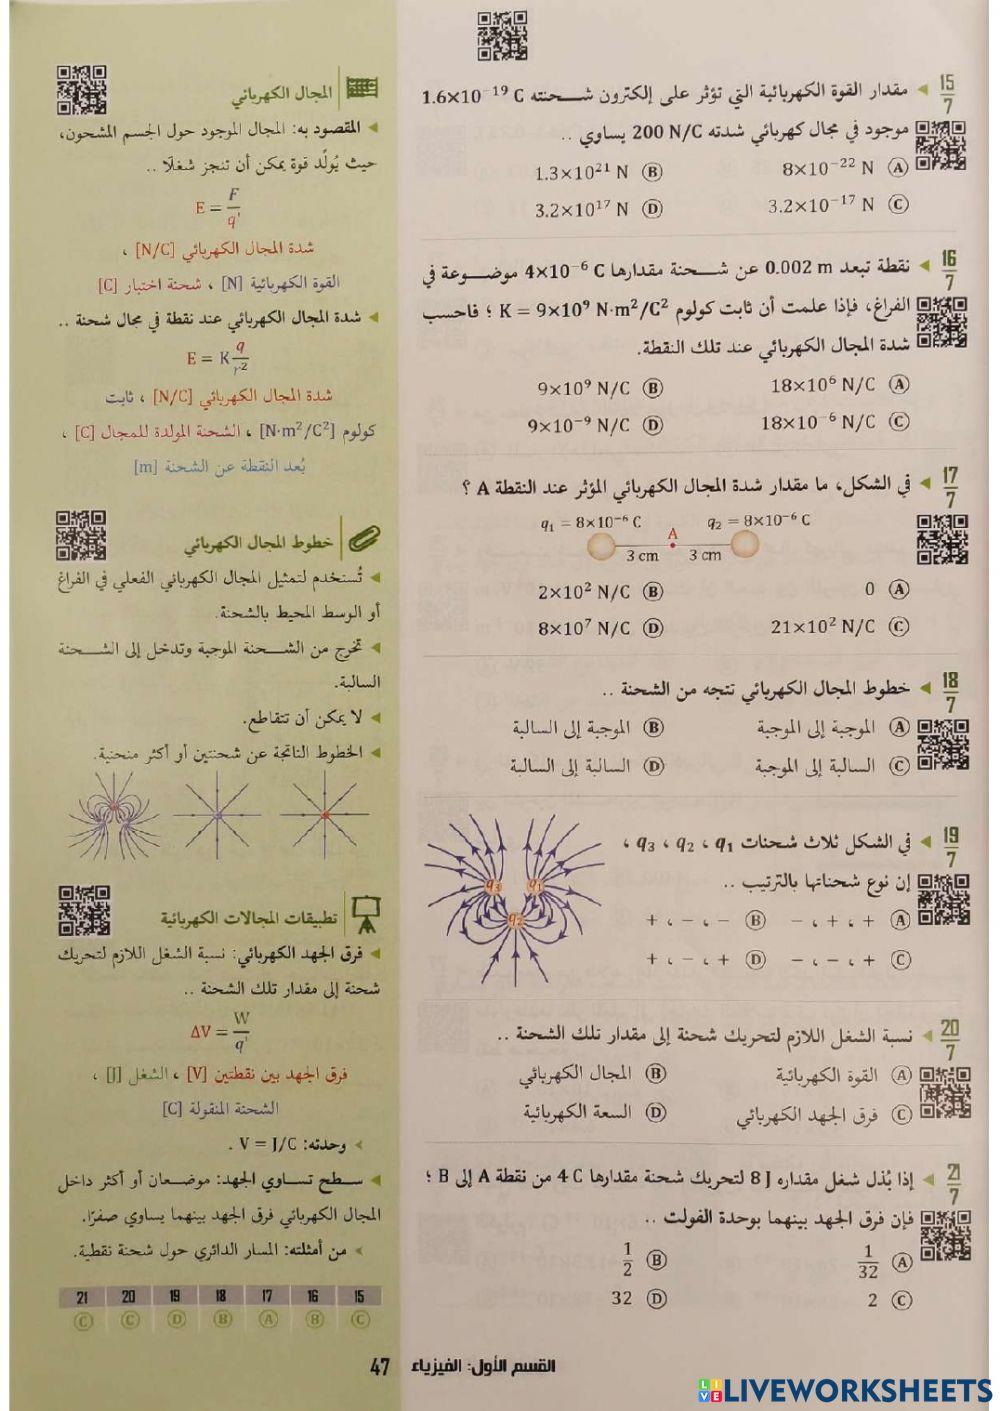 15/7 ◄ مقدار القوة الكهربائية التي تؤثر على إلكترون شحنته 1.6×10⁻¹⁹ C
موجود في مجال كهربائي شدته 200 N/C يساوي ..
Ⓐ 8×10⁻²² N Ⓑ 1.3×10²¹ N
Ⓒ 3.2×10⁻¹⁷ N Ⓓ 3.2×10¹⁷ N
16/7 ◄ نقطة تبعد 0.002 m عن شحنة مقدارها 4×10⁻⁶ C موضوعة في
الفراغ، فإذا علمت أن ثابت كولوم K = 9×10⁹ N·m²/C² ؛ فاحسب
شدة المجال الكهربائي عند تلك النقطة.
Ⓐ 18×10⁶ N/C Ⓑ 9×10⁹ N/C
Ⓒ 18×10⁻⁶ N/C Ⓓ 9×10⁻⁹ N/C
17/7 ◄ في الشكل، ما مقدار شدة المجال الكهربائي المؤثر عند النقطة A ؟
q₁ = 8×10⁻⁶ C q₂ = 8×10⁻⁶ C
A
3 cm 3 cm
Ⓐ 0 Ⓑ 2×10² N/C
Ⓒ 21×10² N/C Ⓓ 8×10⁷ N/C
18/7 ◄ خطوط المجال الكهربائي تتجه من الشحنة ..
Ⓐ الموجبة إلى الموجبة Ⓑ الموجبة إلى السالبة
Ⓒ السالبة إلى الموجبة Ⓓ السالبة إلى السالبة
19/7 ◄ في الشكل ثلاث شحنات q₁ ، q₂ ، q₃ ،
إن نوع شحناتها بالترتيب ..
Ⓐ + ، + ، − Ⓑ − ، − ، +
Ⓒ + ، − ، − Ⓓ + ، − ، +
q₃ q₁
q₂
20/7 ◄ نسبة الشغل اللازم لتحريك شحنة إلى مقدار تلك الشحنة ..
Ⓐ القوة الكهربائية Ⓑ المجال الكهربائي
Ⓒ فرق الجهد الكهربائي Ⓓ السعة الكهربائية
21/7 ◄ إذا بُذل شغل مقداره 8 J لتحريك شحنة مقدارها 4 C من نقطة A إلى B ؛
فإن فرق الجهد بينهما بوحدة الفولت ..
Ⓐ 1/32 Ⓑ 1/2
Ⓒ 2 Ⓓ 32
المجال الكهربائي
◄ المقصود به: المجال الموجود حول الجسم المشحون،
حيث يُولِّد قوة يمكن أن تنجز شغلًا ..
E = F/q'
شدة المجال الكهربائي [N/C] ،
القوة الكهربائية [N] ، شحنة اختبار [C]
◄ شدة المجال الكهربائي عند نقطة في مجال شحنة ..
E = K q/r²
شدة المجال الكهربائي [N/C] ، ثابت
كولوم [N·m²/C²] ، الشحنة المولدة للمجال [C] ،
بُعد النقطة عن الشحنة [m]
خطوط المجال الكهربائي
◄ تُستخدم لتمثيل المجال الكهربائي الفعلي في الفراغ
أو الوسط المحيط بالشحنة.
◄ تخرج من الشحنة الموجبة وتدخل إلى الشحنة
السالبة.
◄ لا يمكن أن تتقاطع.
◄ الخطوط الناتجة عن شحنتين أو أكثر منحنية.
تطبيقات المجالات الكهربائية
◄ فرق الجهد الكهربائي: نسبة الشغل اللازم لتحريك
شحنة إلى مقدار تلك الشحنة ..
ΔV = W/q'
فرق الجهد بين نقطتين [V] ، الشغل [J] ،
الشحنة المنقولة [C]
وحدته: V = J/C .
◄ سطح تساوي الجهد: موضعان أو أكثر داخل
المجال الكهربائي فرق الجهد بينهما يساوي صفرًا.
من أمثلته: المسار الدائري حول شحنة نقطية.
15 16 17 18 19 20 21
Ⓒ Ⓑ Ⓐ Ⓑ Ⓓ Ⓒ Ⓒ
القسم الأول: الفيزياء 47
LIVEWORKSHEETS